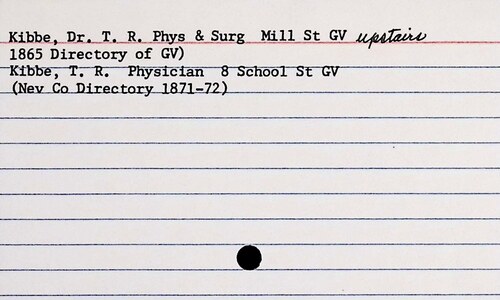 Kibbe, Dr. T. R. Phys & Surg Mill St GV upstairs
1865 Directory of GV)
Kibbe, T. R. Physician 8 School St GV
(Nev Co Directory 1871-72)